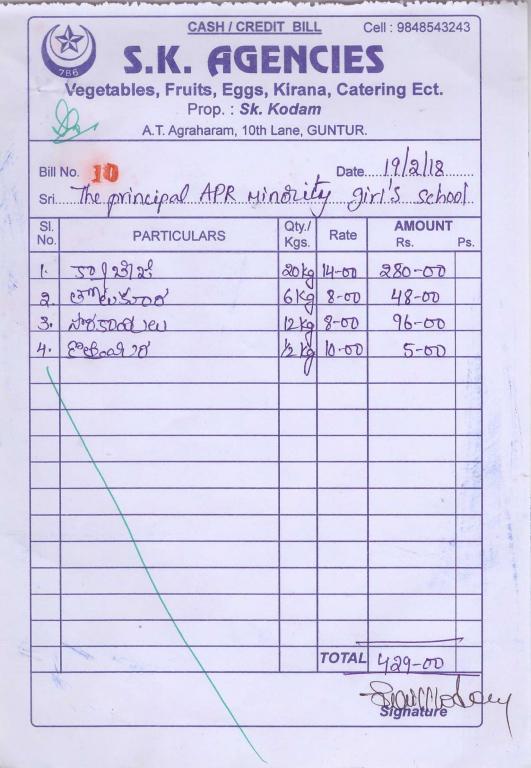 CASH / CREDIT BILL Cell : 9848543243
786
S.K. AGENCIES
Vegetables, Fruits, Eggs, Kirana, Catering Ect.
Prop. : Sk. Kodam
A.T. Agraharam, 10th Lane, GUNTUR.
Bill No. 10 Date 19/2/18
Sri The principal APR minority girl's school
Sl. No. PARTICULARS Qty./ Kgs. Rate AMOUNT Rs. Ps.
1. 20kg 14-00 280-00
2. 6kg 8-00 48-00
3. 12kg 8-00 96-00
4. 1/2kg 10-00 5-00
TOTAL 429-00
Signature